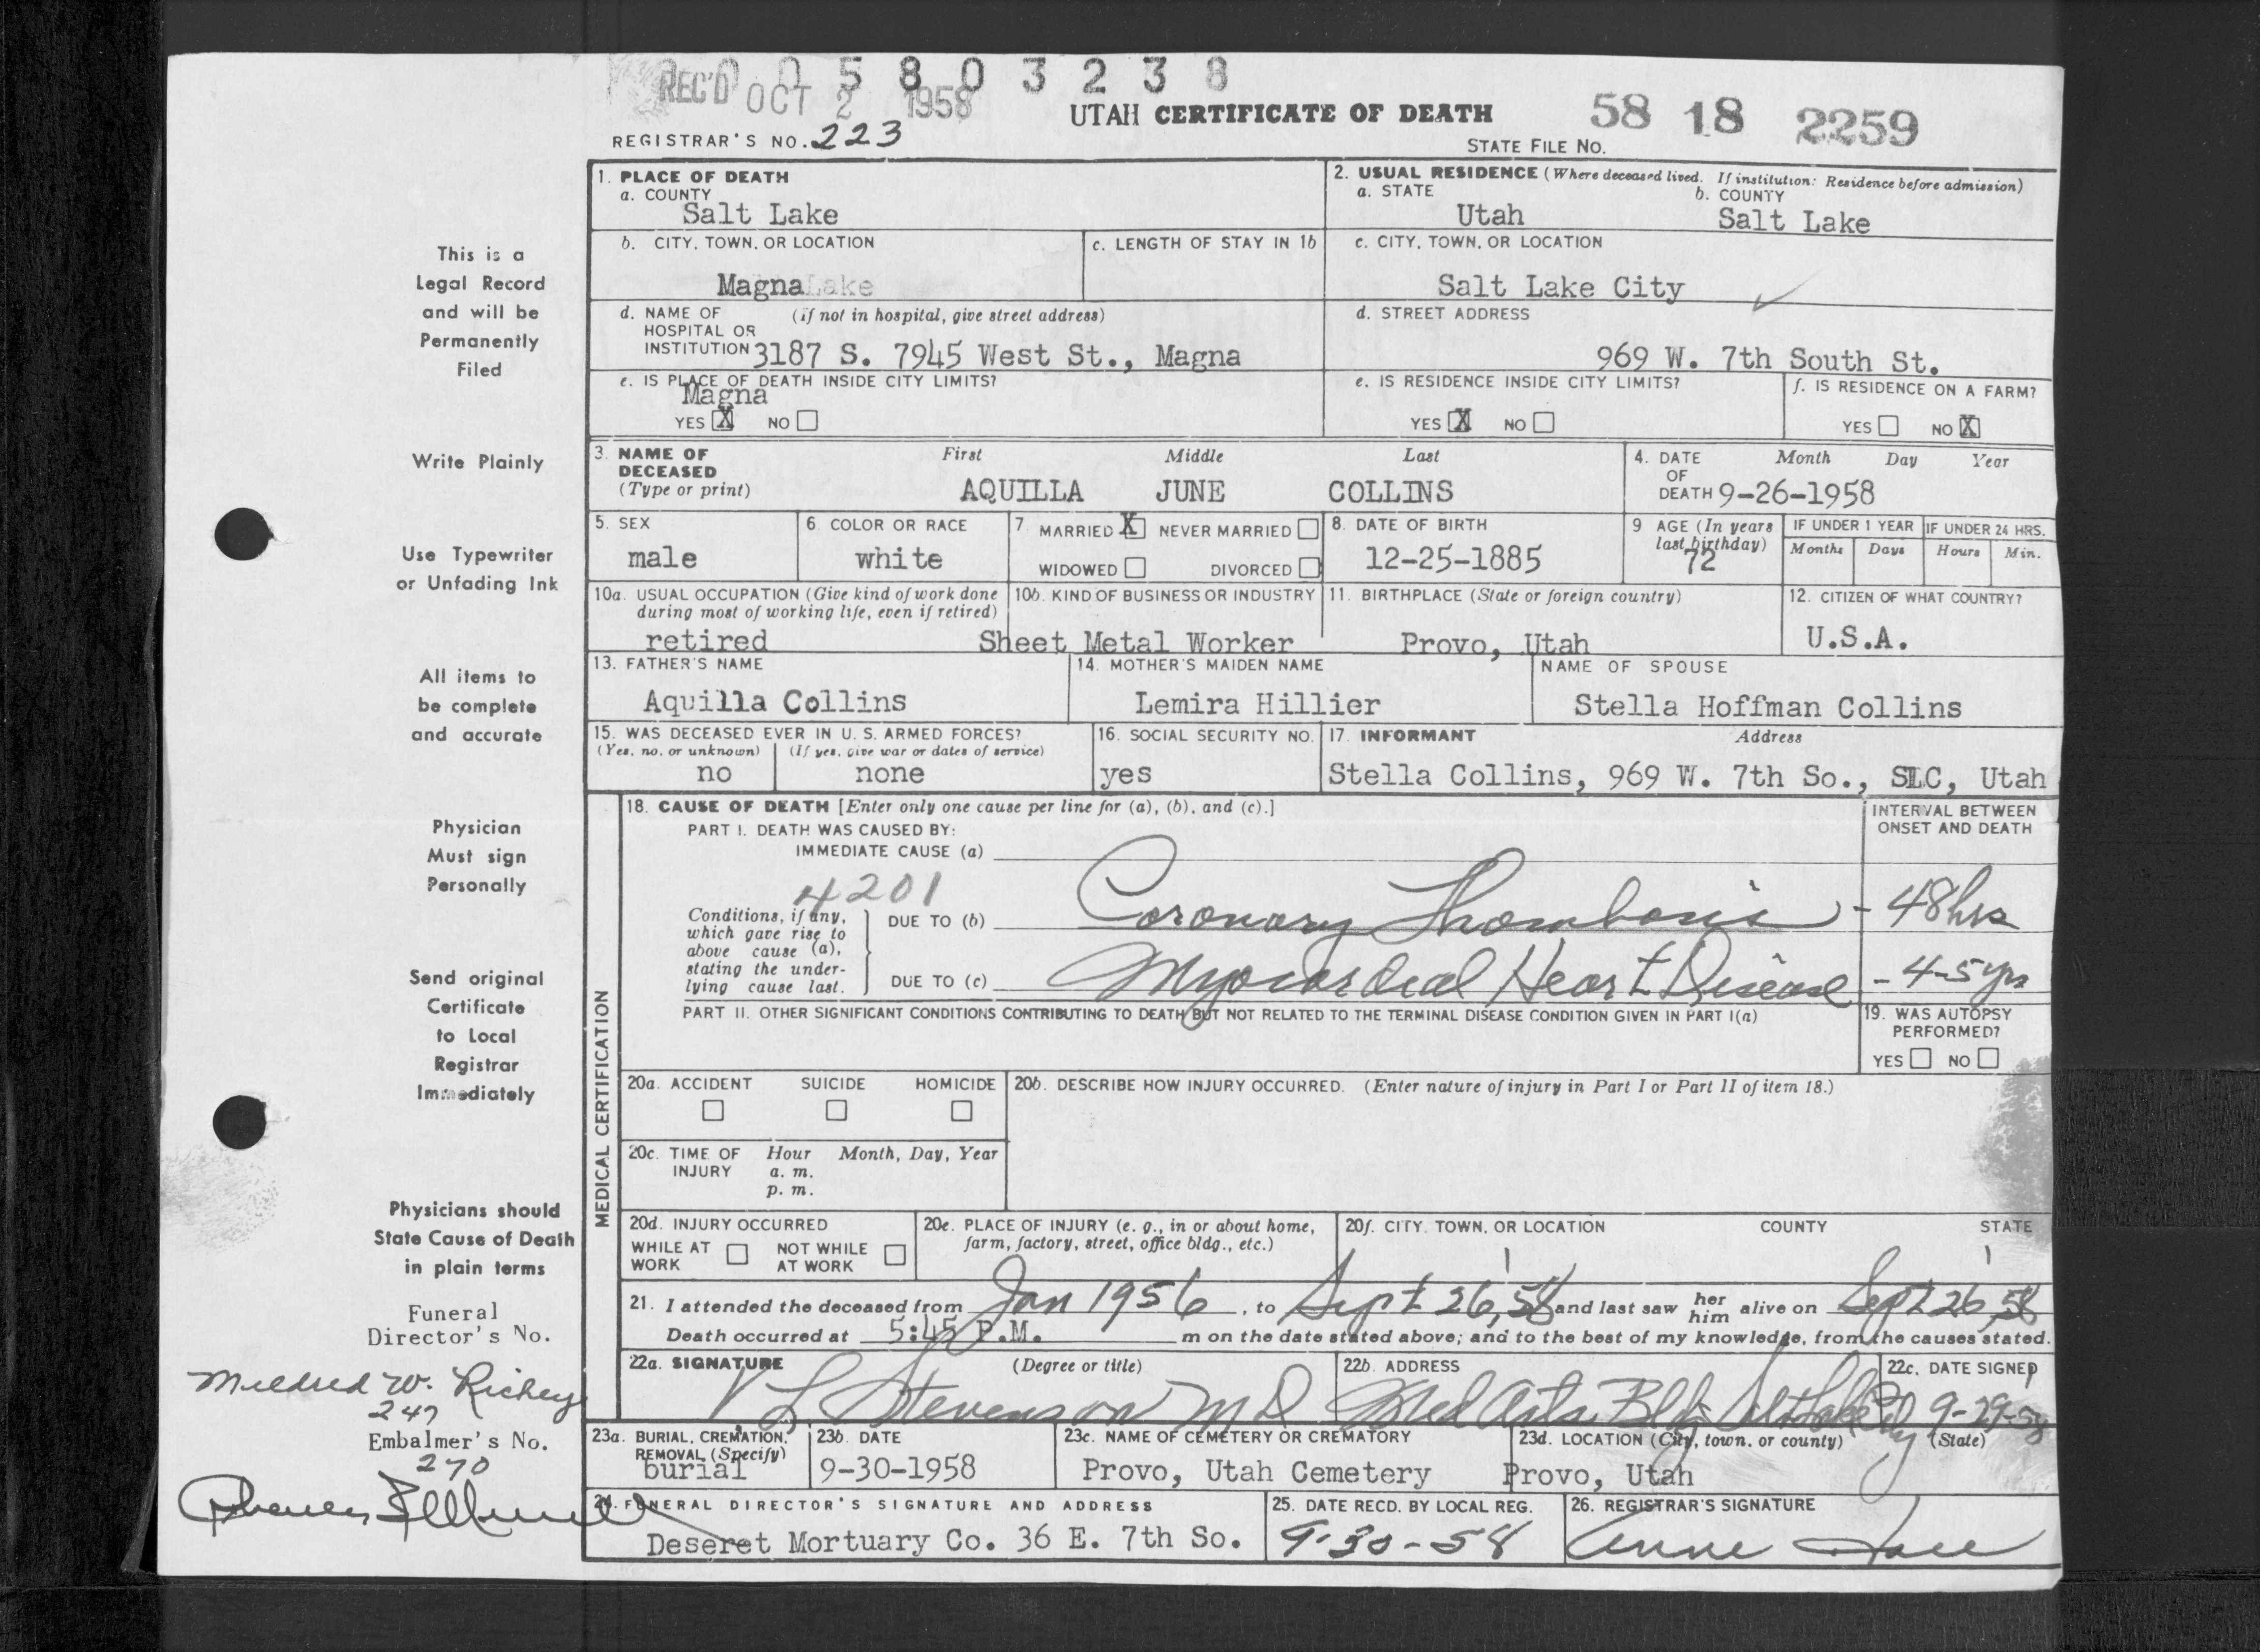 0 0 5 8 0 3 2 3 8
REC'D OCT 2 1958
UTAH CERTIFICATE OF DEATH
58 18 2259
REGISTRAR'S NO. 223
STATE FILE NO.
1. PLACE OF DEATH
a. COUNTY
Salt Lake
2. USUAL RESIDENCE (Where deceased lived. If institution: Residence before admission)
a. STATE
Utah
b. COUNTY
Salt Lake
b. CITY, TOWN, OR LOCATION
Magna Lake
c. LENGTH OF STAY IN 1b
c. CITY, TOWN, OR LOCATION
Salt Lake City
d. NAME OF HOSPITAL OR INSTITUTION (if not in hospital, give street address)
3187 S. 7945 West St., Magna
d. STREET ADDRESS
969 W. 7th South St.
e. IS PLACE OF DEATH INSIDE CITY LIMITS?
Magna
YES X NO
e. IS RESIDENCE INSIDE CITY LIMITS?
YES X NO
f. IS RESIDENCE ON A FARM?
YES NO X
3. NAME OF DECEASED (Type or print)
First Middle Last
AQUILLA JUNE COLLINS
4. DATE OF DEATH Month Day Year
9-26-1958
5. SEX
male
6. COLOR OR RACE
white
7. MARRIED X NEVER MARRIED
WIDOWED DIVORCED
8. DATE OF BIRTH
12-25-1885
9 AGE (In years last birthday)
72
IF UNDER 1 YEAR
Months Days
IF UNDER 24 HRS.
Hours Min.
10a. USUAL OCCUPATION (Give kind of work done during most of working life, even if retired)
retired
10b. KIND OF BUSINESS OR INDUSTRY
Sheet Metal Worker
11. BIRTHPLACE (State or foreign country)
Provo, Utah
12. CITIZEN OF WHAT COUNTRY?
U.S.A.
13. FATHER'S NAME
Aquilla Collins
14. MOTHER'S MAIDEN NAME
Lemira Hillier
NAME OF SPOUSE
Stella Hoffman Collins
15. WAS DECEASED EVER IN U. S. ARMED FORCES?
(Yes, no, or unknown) (If yes, give war or dates of service)
no none
16. SOCIAL SECURITY NO.
yes
17. INFORMANT Address
Stella Collins, 969 W. 7th So., SLC, Utah
MEDICAL CERTIFICATION
18. CAUSE OF DEATH [Enter only one cause per line for (a), (b), and (c).]
PART I. DEATH WAS CAUSED BY:
IMMEDIATE CAUSE (a)
INTERVAL BETWEEN ONSET AND DEATH
4201
Conditions, if any, which gave rise to above cause (a), stating the underlying cause last.
DUE TO (b) Coronary Thombosis - 48 hrs
DUE TO (c) Myocardial Heart Disease - 4-5 yrs
PART II. OTHER SIGNIFICANT CONDITIONS CONTRIBUTING TO DEATH BUT NOT RELATED TO THE TERMINAL DISEASE CONDITION GIVEN IN PART I(a)
19. WAS AUTOPSY PERFORMED?
YES NO
20a. ACCIDENT SUICIDE HOMICIDE
20b. DESCRIBE HOW INJURY OCCURRED. (Enter nature of injury in Part I or Part II of item 18.)
20c. TIME OF INJURY Hour Month, Day, Year
a. m.
p. m.
20d. INJURY OCCURRED
WHILE AT WORK NOT WHILE AT WORK
20e. PLACE OF INJURY (e. g., in or about home, farm, factory, street, office bldg., etc.)
20f. CITY, TOWN, OR LOCATION COUNTY STATE
21. I attended the deceased from Jan 1956, to Sept 26, 58 and last saw her him alive on Sept 26, 58
Death occurred at 5:45 P.M. m on the date stated above; and to the best of my knowledge, from the causes stated.
22a. SIGNATURE (Degree or title)
V L Stevenson M D
22b. ADDRESS
Med Arts Bldg Salt Lake City
22c. DATE SIGNED
9-29-58
23a. BURIAL, CREMATION, REMOVAL (Specify)
burial
23b. DATE
9-30-1958
23c. NAME OF CEMETERY OR CREMATORY
Provo, Utah Cemetery
23d. LOCATION (City, town, or county) (State)
Provo, Utah
24. FUNERAL DIRECTOR'S SIGNATURE AND ADDRESS
Deseret Mortuary Co. 36 E. 7th So.
25. DATE RECD. BY LOCAL REG.
9-30-58
26. REGISTRAR'S SIGNATURE
Anne
This is a
Legal Record
and will be
Permanently
Filed
Write Plainly
Use Typewriter
or Unfading Ink
All items to
be complete
and accurate
Physician
Must sign
Personally
Send original
Certificate
to Local
Registrar
Immediately
Physicians should
State Cause of Death
in plain terms
Funeral
Director's No.
Mildred W. Richey
247
Embalmer's No.
270